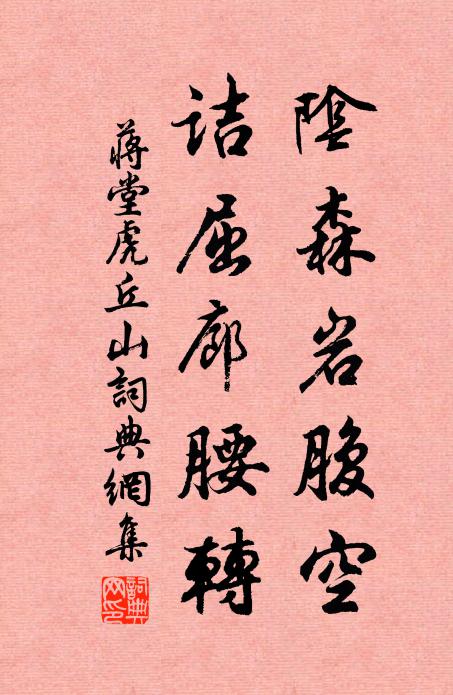 陰森岩腹空
詰屈廊腰轉
蔣堂虎丘山詞典網集
詞典網印